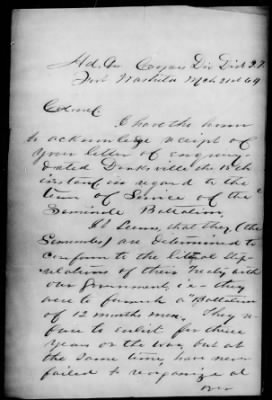 Hd. Qr. Coopers Div. Dist I.T.
Fort Washita Mch 21st 64
Colonel
I have the honor
to acknowledge receipt of
your letter of enquiry
dated Doaksville the 15th
instant in regard to the
term of Service of the
Seminole Battalion.
It Seems, that they (the
Seminoles) are determined to
conform to the literal stip-
ulations of their Treaty with
our Government, i.e. they
were to furnish a "Battalion
of 12 months men. They re-
fuse to enlist for three
years or the war, but at
the same time, have never
failed to reorganize at